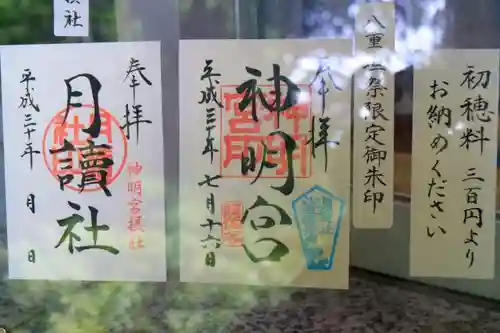 初穂料 三百円より
お納めください
八重
祭限定御朱印
奉拝
神明宮
平成三十年七月十六日
摂社
奉拝
月讀社
神明宮摂社
平成三十年 月 日